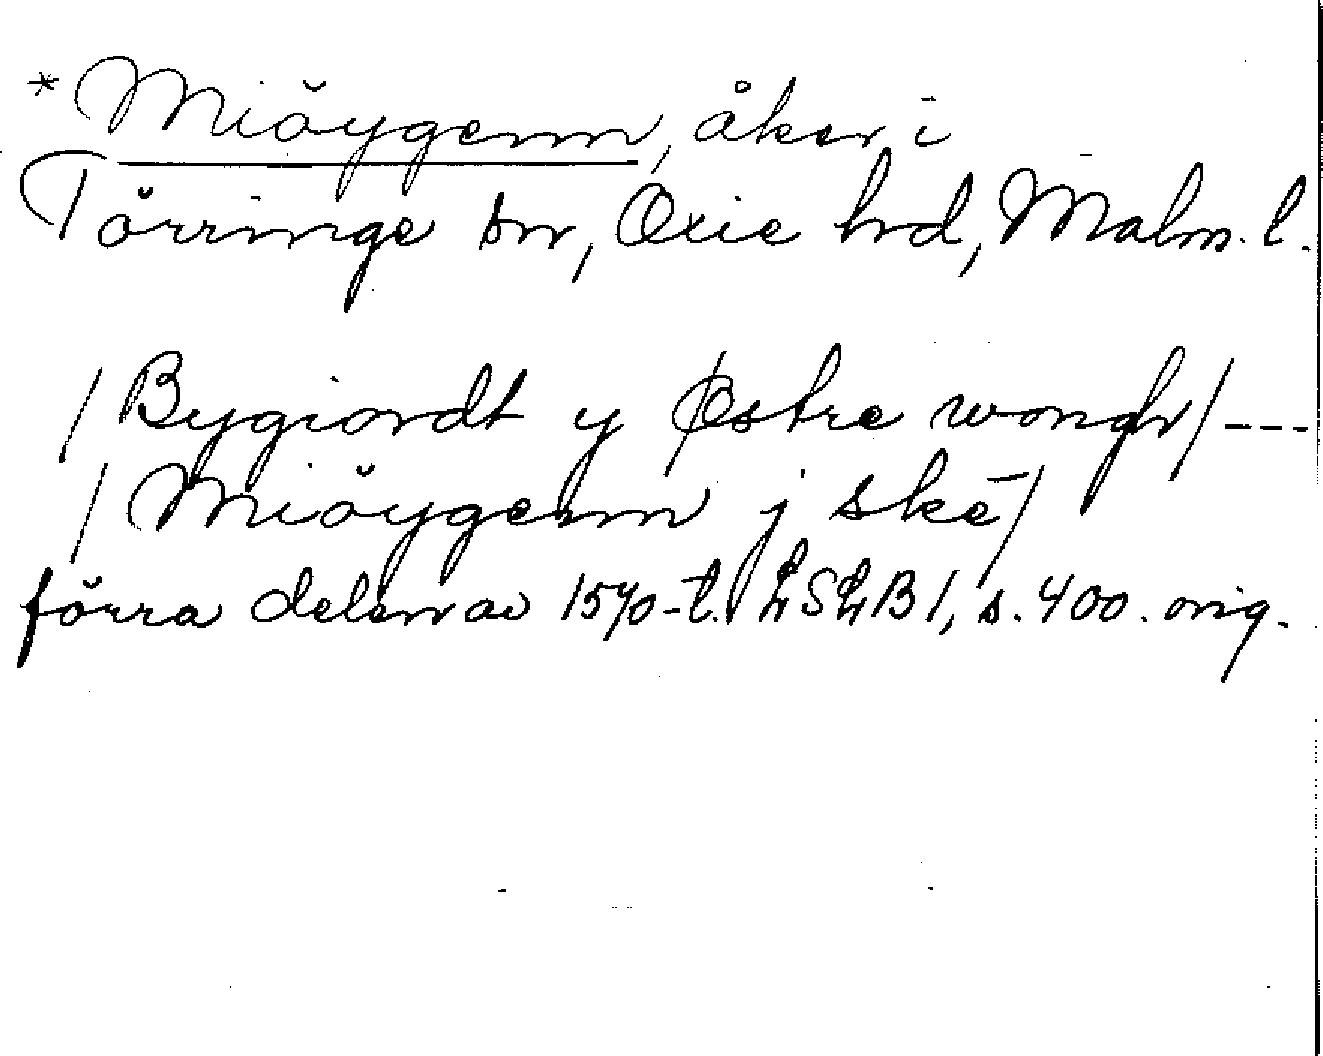 *Miöygenn, åker i
Törringe sn, Oxie hrd, Malm. l.
/Bygiordt y Østre wongh/---
/Miöygenn j skē/
förra delen av 1570-t. LSLB 1, s. 400. orig.